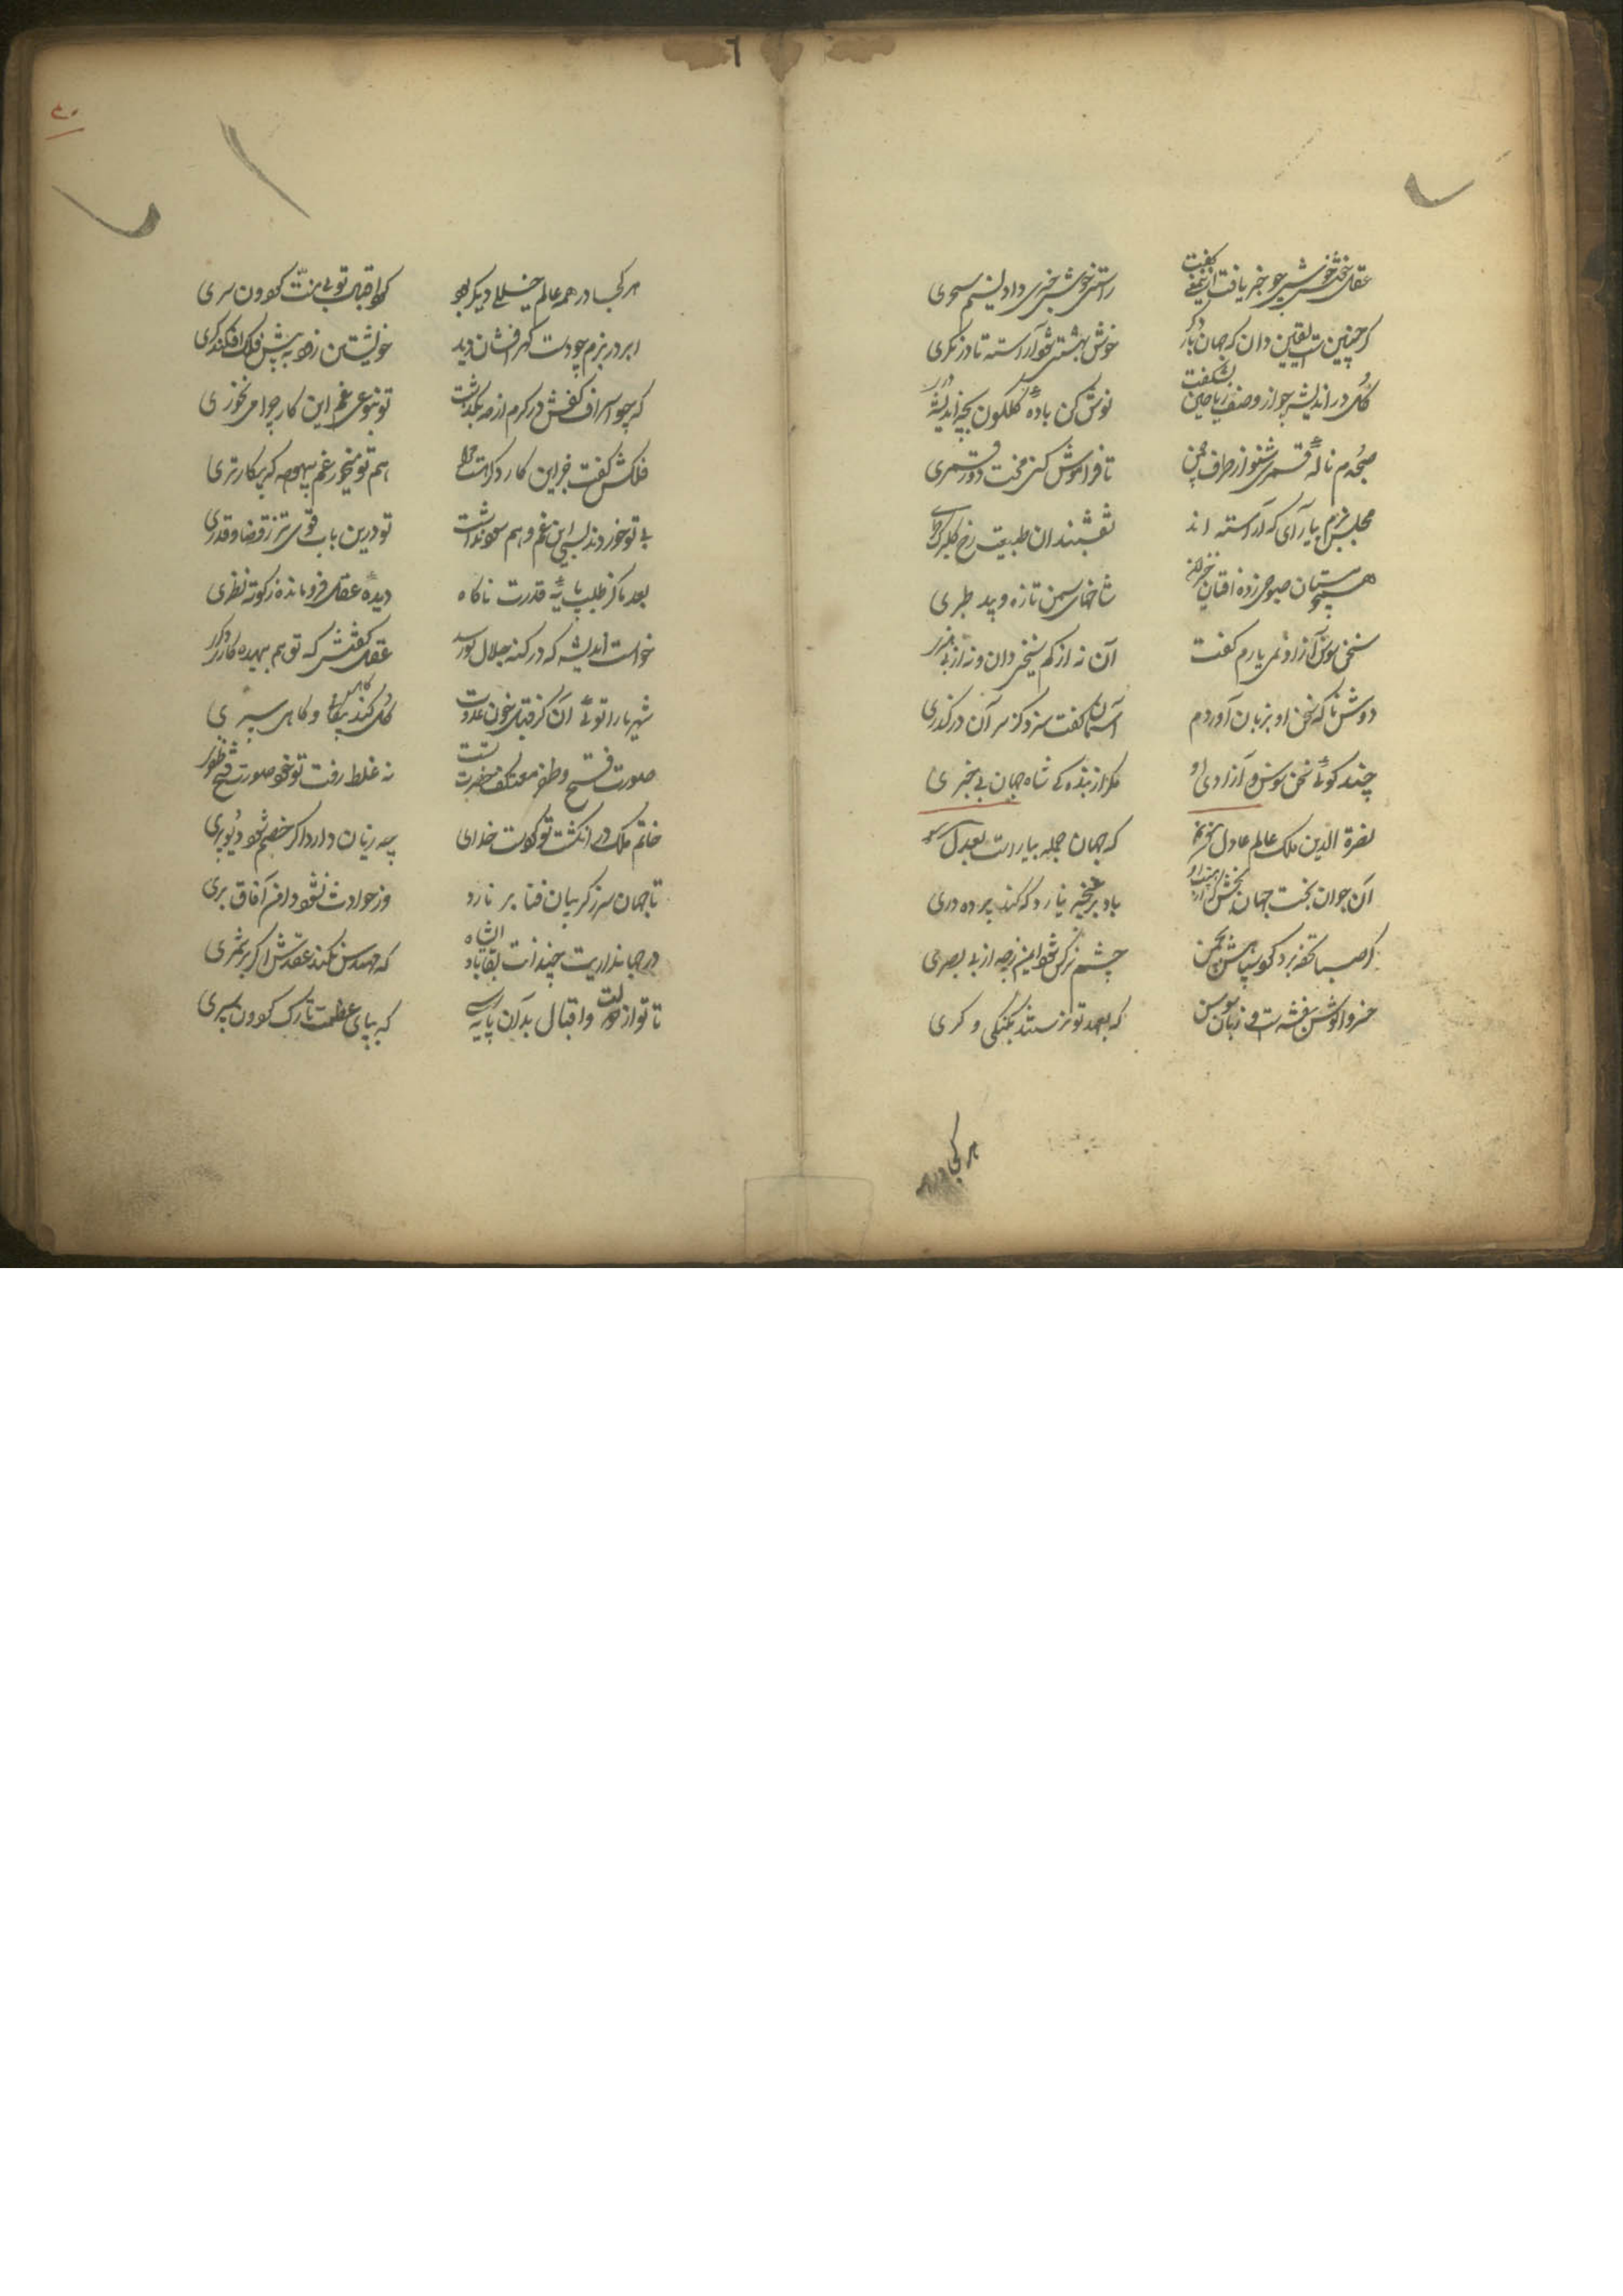 عقل خوش خوش چو خبر یافت ازین معنی گفت راستی خوش خبری داد نسیم سحری
گر چنین است یقین دان که جهان بار دگر خوش بهشتی شود آراسته تا درنگری
گل در اندیشه چو از وصف ریاحین بشکفت نوش کن باده گلگون بچه اندیشه دری
صبحدم ناله قمری شنو از طرف چمن تا فراموش کنی محنت دور قمری
مجلس بزم بیارای که آراسته اند نقشبندان طبیعت رخ گلبرگ طری
همچو مستان صبوحی زده افتان خیزان شاخهای سمن تازه و بید طبری
سخن سوسن آزاد نمی یارم گفت آن نه از کم سخنی دان و نه از بی هنری
دوش ناگه سخن او بزبان آوردم آسمان گفت سزد کز سر آن درگذری
چند گوئی سخن سوسن و آزادی او مگر از بنده گی شاه جهان بی خبری
نصرة الدین ملک عالم عادل که جهان جمله بیاراست بعدل
آن جوان بخت جهان بخش باد بر غنچه نیارد که کند پرده دری
از صبا تحفه برد چشم نرگس شود ایمن زچه از بی بصری
خسروا گوش بنفشه است و زبان سوسن که بعهد تو برستند بگنگی و کری
هر کجا در همه
هر کجا در همه عالم خللی دیگر بود کرد اقبال تو بی منت گردون سری
ابر در بزم چو دست گهر افشان دید خویشتن زد به پیش فلک افکند کری
که چو اسراف کفش در کرم از حد بگذشت تو بنوعی غم این کار چرا می نخوری
فلکش گفت خبر این کار دگر است هم تو میخور غم بیهوده که بیکارتری
بی تو خوردند بسی این غم و هم سود نداشت تو درین باب قوی تر ز قضا و قدری
بعد ما کز طلب پایه قدرت ناگاه دیده عقل فرو مانده ز کوته نظری
خواست اندیشه که در کنه جلال تو رسد عقل گفتش که تو هم بیهده کار دگر
شهریارا توئی آن کز قبل خون عدوت گل کند پیکان گاهی و گاهی سپری
صورت فتح و ظفر معتکف حضرت تست نه غلط رفت تو خود صورت فتح ظفر
خاتم ملک در انگشت تو کردست خدای چه زیان دارد اگر خصم شود دیو پری
تا جهان سر ز گریبان فنا بر نارد وز حوادث نشود دامن آفاق بری
در جهانداریت چندان بقا باد ان شاه که مهندس نکند عقدش اگر بر شمری
تا تو از دولت و اقبال بدان پایه رسی که بپای عظمت تارک گردون سپری